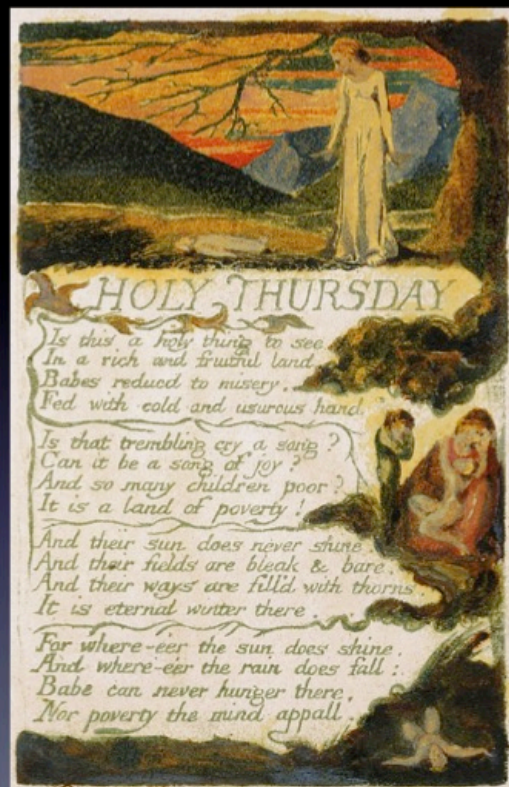 HOLY THURSDAY
Is this a holy thing to see.
In a rich and fruitful land.
Babes reduced to misery.
Fed with cold and usurous hand?
Is that trembling cry a song?
Can it be a song of joy?
And so many children poor?
It is a land of poverty!
And their sun does never shine.
And their fields are bleak & bare.
And their ways are fill'd with thorns
It is eternal winter there
For where-e'er the sun does shine.
And where-e'er the rain does fall:
Babe can never hunger there,
Nor poverty the mind appall.